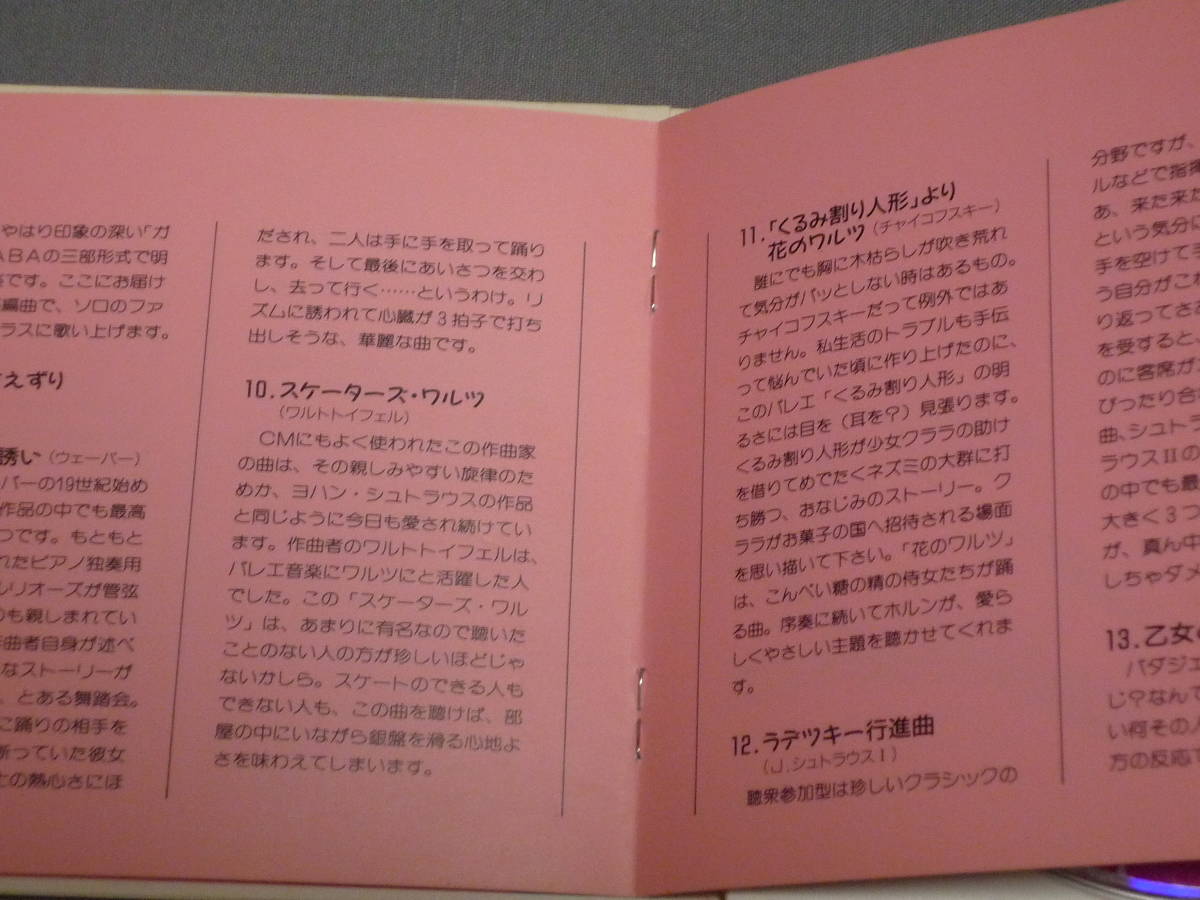 やはり印象の深い「ガ
ABAの三部形式で明
です。ここにお届け
編曲で、ソロのファ
ラスに歌い上げます。
えずり
誘い（ウェーバー）
バーの19世紀始め
作品の中でも最高
つです。もともと
れたピアノ独奏用
ルリオーズが管弦
も親しまれてい
作曲者自身が述べ
なストーリーが
、とある舞踏会。
に踊りの相手を
断っていた彼女
との熱心さにほ
だされ、二人は手に手を取って踊り
ます。そして最後にあいさつを交わ
し、去って行く……というわけ。リ
ズムに誘われて心臓が3拍子で打ち
出しそうな、華麗な曲です。
10.スケーターズ・ワルツ
（ワルトトイフェル）
CMにもよく使われたこの作曲家
の曲は、その親しみやすい旋律のた
めか、ヨハン・シュトラウスの作品
と同じように今日も愛され続けてい
ます。作曲者のワルトトイフェルは、
バレエ音楽にワルツにと活躍した人
でした。この「スケーターズ・ワル
ツ」は、あまりに有名なので聴いた
ことのない人の方が珍しいほどじゃ
ないかしら。スケートのできる人も
できない人も、この曲を聴けば、部
屋の中にいながら銀盤を滑る心地よ
さを味わえてしまいます。
11.「くるみ割り人形」より
花のワルツ（チャイコフスキー）
誰にでも胸に木枯らしが吹き荒れ
て気分がパッとしない時はあるもの。
チャイコフスキーだって例外ではあ
りません。私生活のトラブルも手伝
って悩んでいた頃に作り上げたのに、
このバレエ「くるみ割り人形」の明
るさには目を（耳を?）見張ります。
くるみ割り人形が少女クララの助け
を借りてめでたくネズミの大群に打
ち勝つ、おなじみのストーリー。ク
ララがお菓子の国へ招待される場面
を思い描いて下さい。「花のワルツ」
は、こんぺい糖の精の侍女たちが踊
る曲。序奏に続いてホルンが、愛ら
しくやさしい主題を聴かせてくれま
す。
12.ラデツキー行進曲
（J.シュトラウスI）
聴衆参加型は珍しいクラシックの
分野ですが、
ルなどで指揮
あ、来た来た
という気分に
手を空けて
う自分がこ
り返ってさ
を受すると、
のに客席が
ぴったり合
曲、シュトラ
ラウスIIの
の中でも最
大きく3つ
が、真ん中
しちゃダメ
13.乙女
バダジェ
じ?なんて
い何その
方の反応